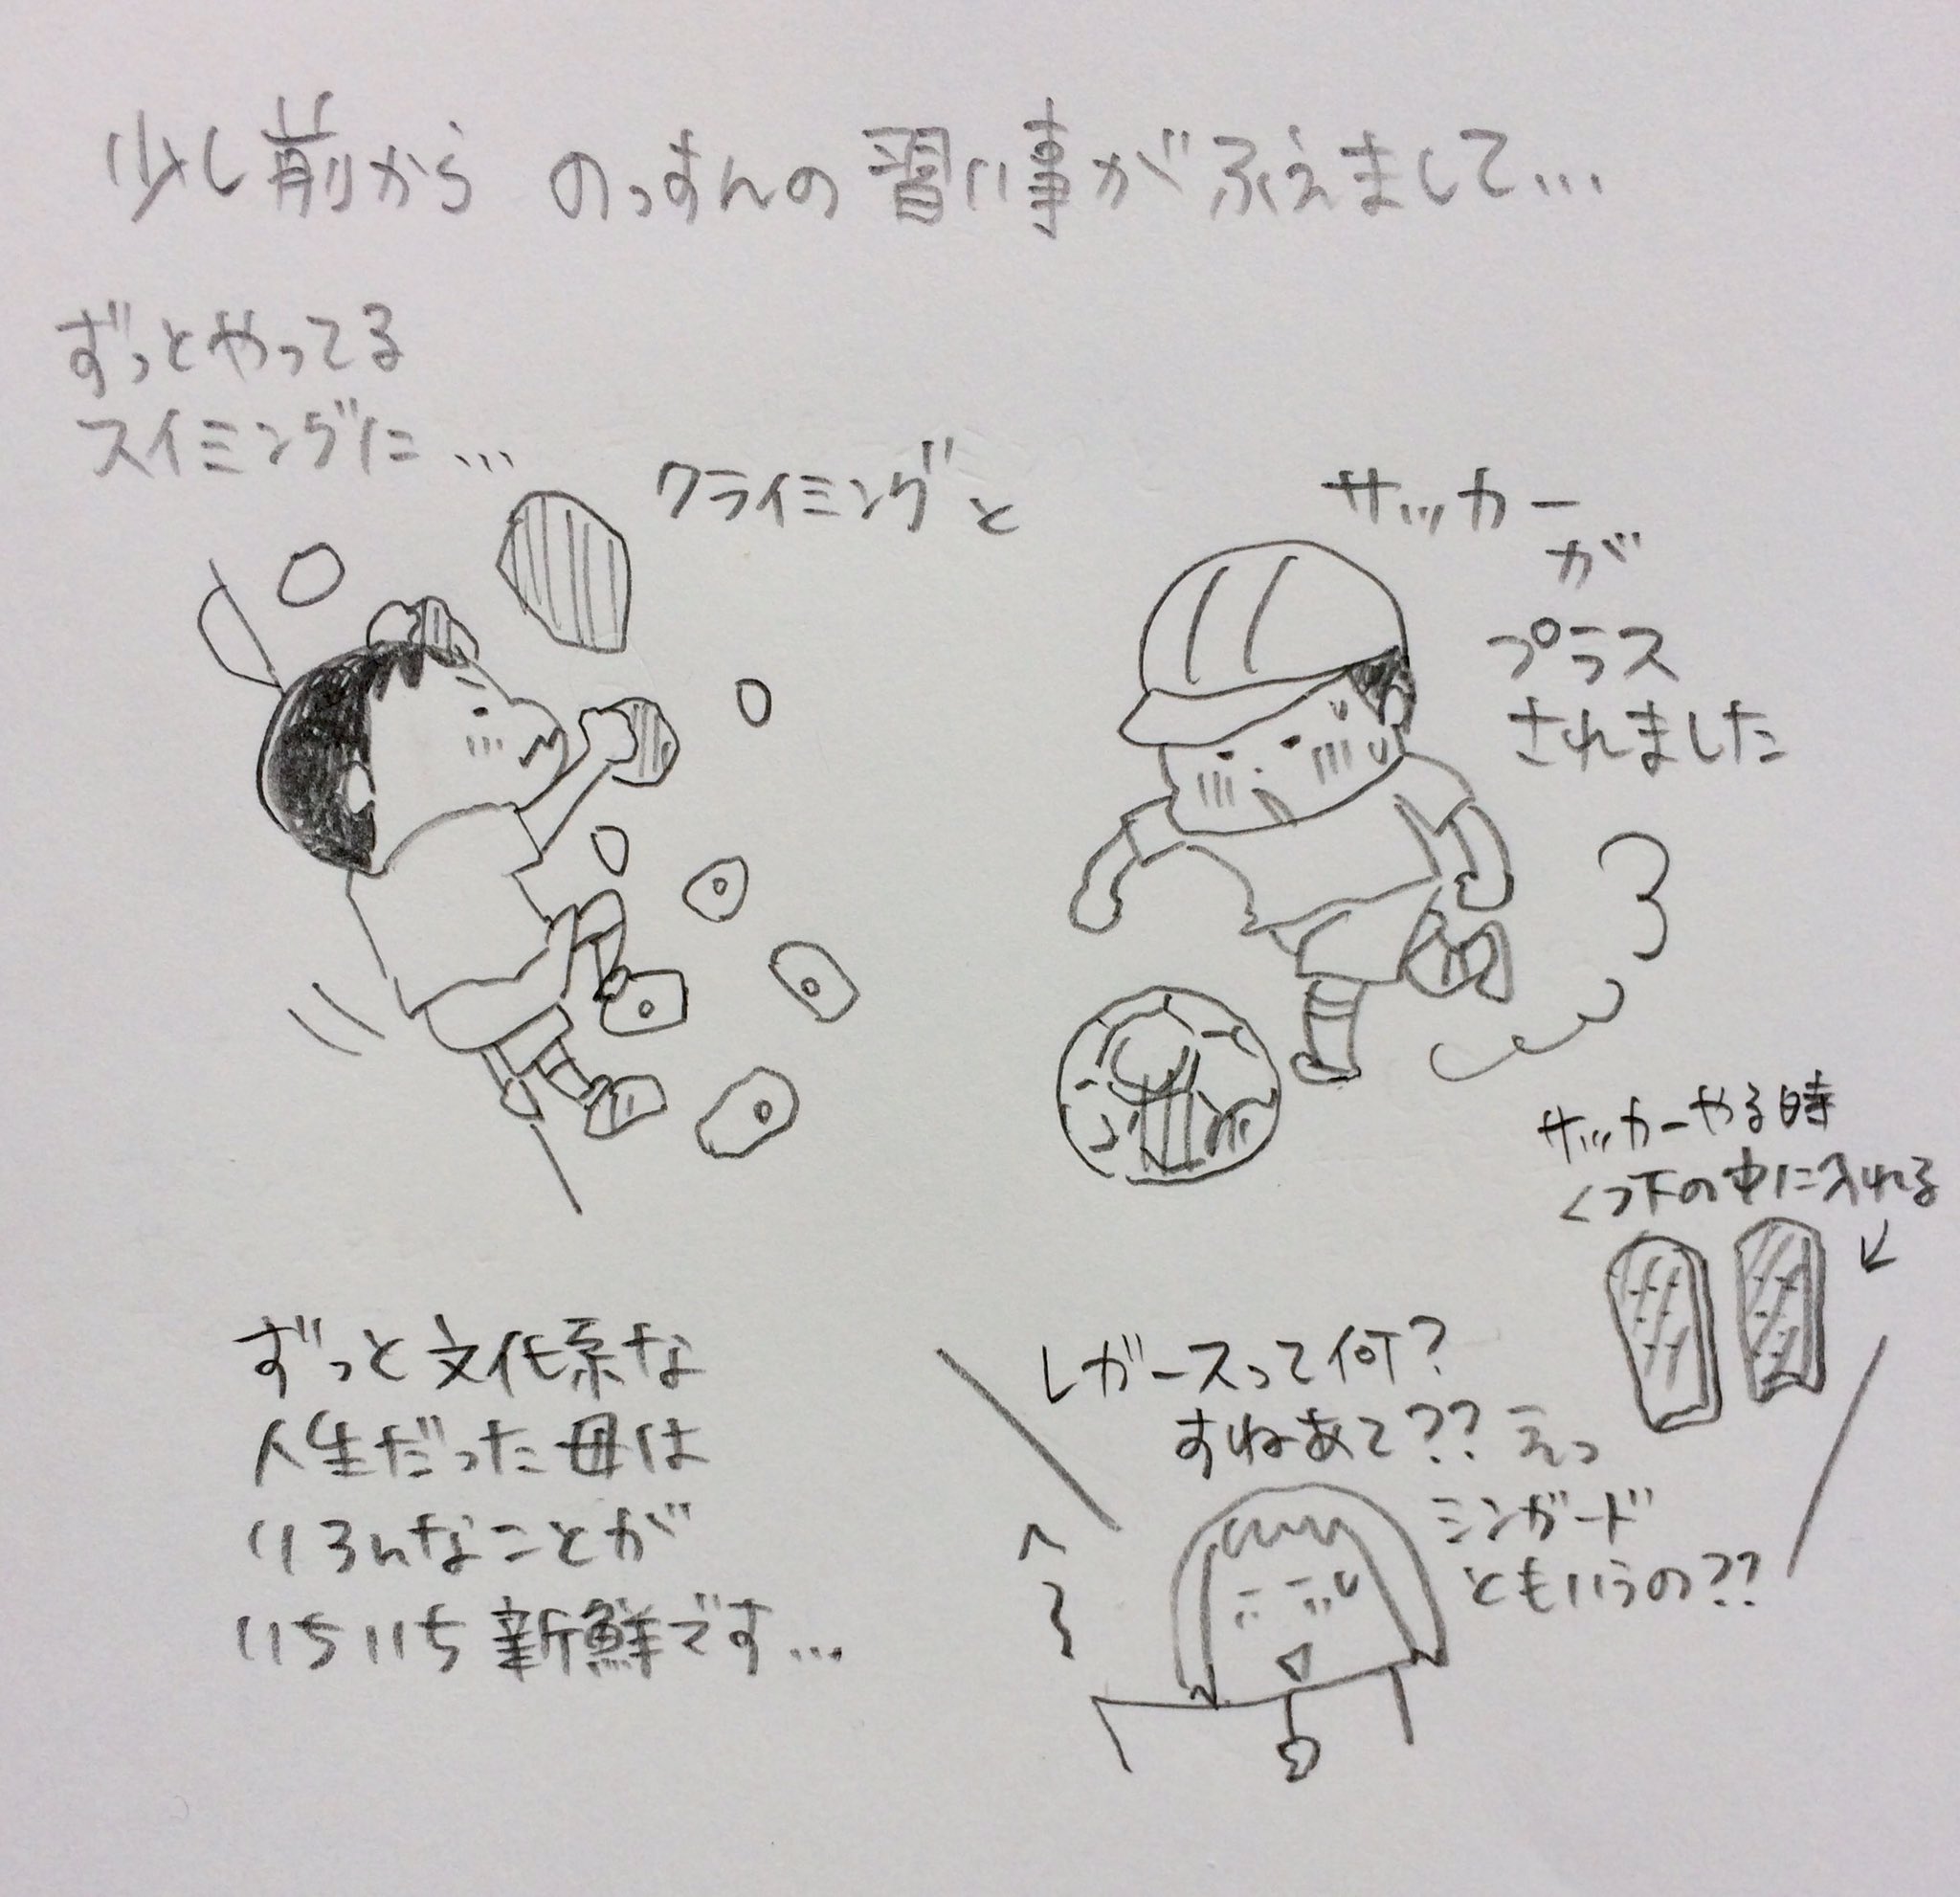 少し前から のっすんの習い事がふえまして…
ずっとやってる
スイミングに…
クライミングと
サッカー
が
プラス
されました
サッカーやる時
くつ下の中に入れる
ずっと文化系な
人生だった母は
いろんなことが
いちいち新鮮です…
レガースって何?
すねあて?? えっ
シンガード
ともいうの??
へ
え